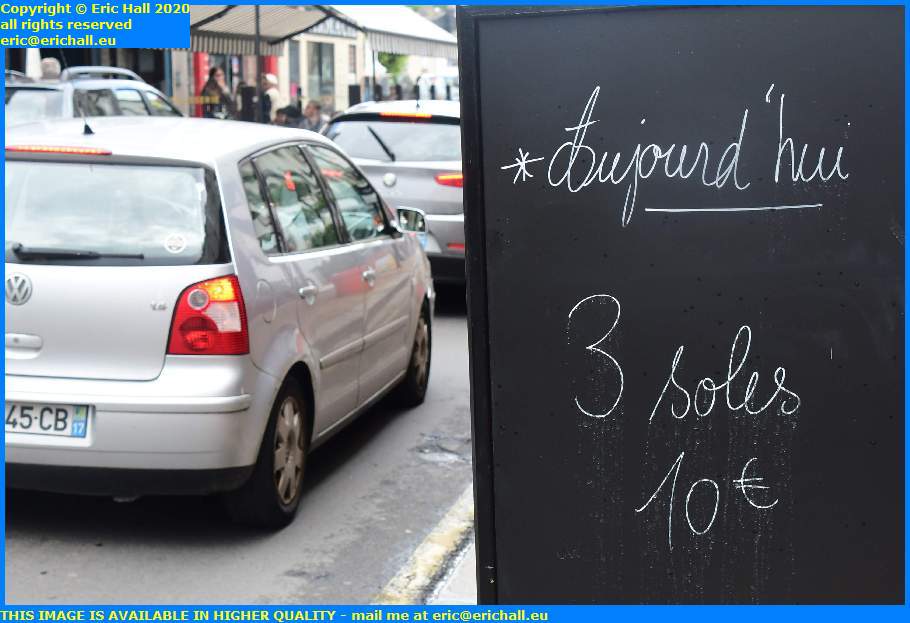 Copyright © Eric Hall 2020
all rights reserved
eric@erichall.eu
* Aujourd'hui
3 soles
10€
45-CB
17
THIS IMAGE IS AVAILABLE IN HIGHER QUALITY - mail me at eric@erichall.eu